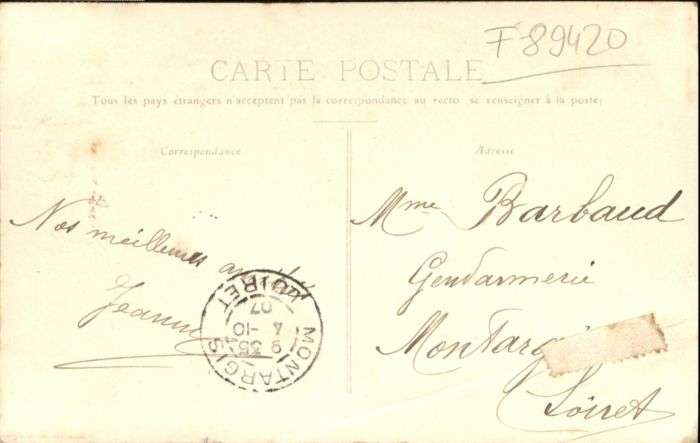 F89420
CARTE POSTALE
Tous les pays étrangers n'acceptent pas la correspondance au recto se renseigner à la poste
Correspondance
Adresse
Nos meilleures
Jeanne
MONTARGIS
LOIRET
9 35
4 -10
07
Mme Barbaud
Gendarmerie
Montargi
Loiret